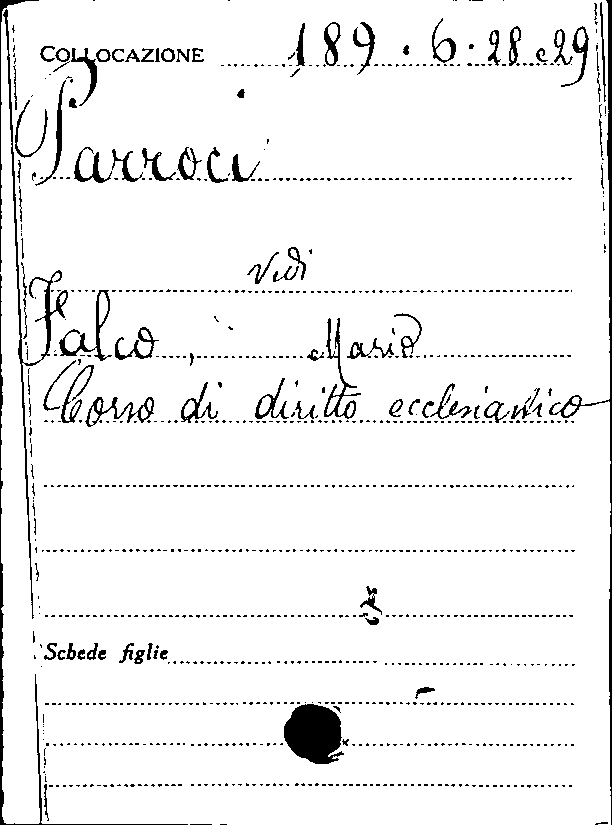 COLLOCAZIONE 189.6.28 e 29
Parroci
vedi
Falco, Mario
Corso di diritto ecclesiastico
Schede figlie